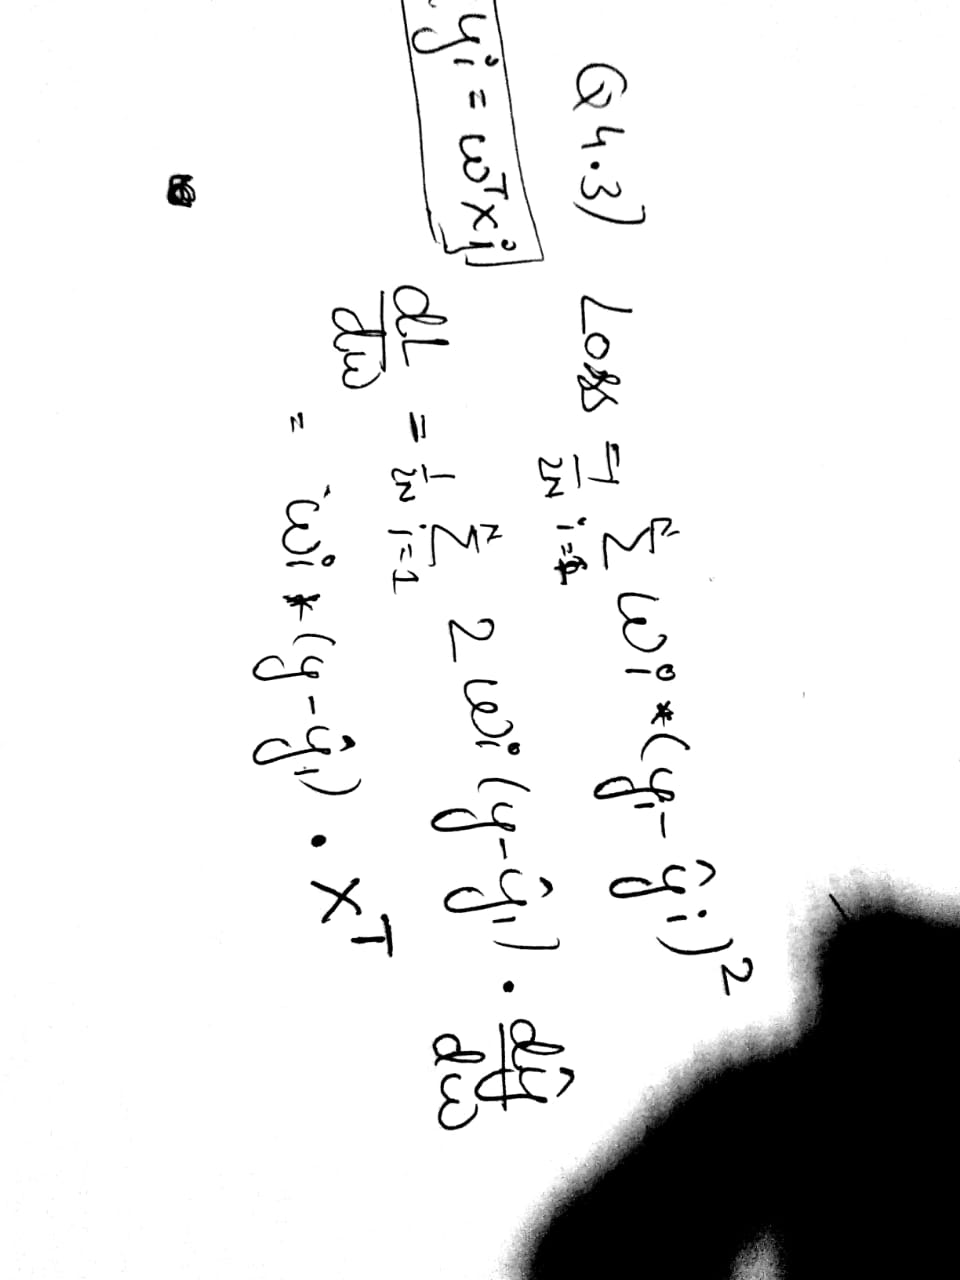 Q4.3) Loss = 1/2N Σ_{i=1}^{N} wi * (yi - ŷi)²
yi = wᵀxi
dL/dw = 1/2N Σ_{i=1}^{N} 2 wi (y - ŷi) · dŷ/dw
= wi * (y - ŷi) · Xᵀ